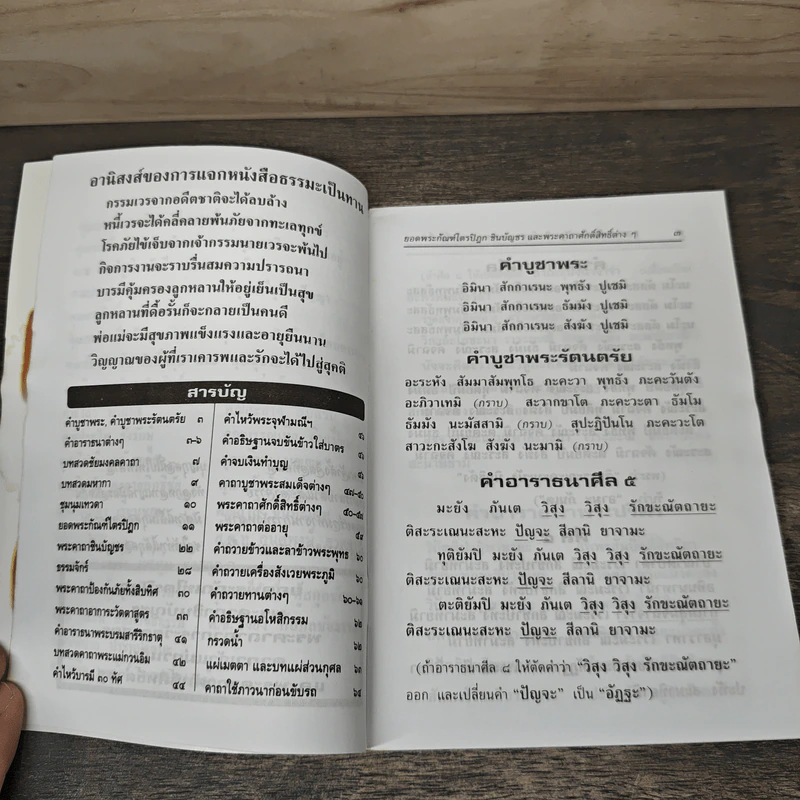 อานิสงส์ของการแจกหนังสือธรรมะเป็นทาน
กรรมเวรจากอดีตชาติจะได้ลบล้าง
หนี้เวรจะได้คลี่คลายพ้นภัยจากทะเลทุกข์
โรคภัยไข้เจ็บจากเจ้ากรรมนายเวรจะพ้นไป
กิจการงานจะราบรื่นสมความปรารถนา
บารมีคุ้มครองลูกหลานให้อยู่เย็นเป็นสุข
ลูกหลานที่ดื้อรั้นก็จะกลายเป็นคนดี
พ่อแม่จะมีสุขภาพแข็งแรงและอายุยืนนาน
วิญญาณของผู้ที่เราเคารพและรักจะได้ไปสู่สุคติ
สารบัญ
คำบูชาพระ, คำบูชาพระรัตนตรัย ๓
คำอาราธนาต่างๆ ๓-๖
บทสวดชัยมงคลคาถา ๗
บทสวดมหากา ๙
ชุมนุมเทวดา ๑๐
ยอดพระกัณฑ์ไตรปิฎก ๑๑
พระคาถาชินบัญชร ๒๒
ธรรมจักร์ ๒๘
พระคาถาป้องกันภัยทั้งสิบทิศ ๓๐
พระคาถาอาการะวัตตาสูตร ๓๓
คำอาราธนาพระบรมสารีริกธาตุ ๔๑
บทสวดคาถาพระแม่กวนอิม ๔๒
คำไหว้บารมี ๓๐ ทัศ ๔๔
คำไหว้พระจุฬามณีฯ
คำอธิษฐานจบขันข้าวใส่บาตร
คำจบเงินทำบุญ
คาถาบูชาพระสมเด็จต่างๆ
พระคาถาศักดิ์สิทธิ์ต่างๆ
พระคาถาต่ออายุ
คำถวายข้าวและลาข้าวพระพุทธ ๖๐
คำถวายเครื่องสังเวยพระภูมิ ๖๐
คำถวายทานต่างๆ ๖๐-๖๑
คำอธิษฐานอโหสิกรรม ๖๒
กรวดน้ำ ๖๒
แผ่เมตตา และบทแผ่ส่วนกุศล ๖๓
คาถาใช้ภาวนาก่อนขับรถ ๖๔
ยอดพระกัณฑ์ไตรปิฎก ชินบัญชร และพระคาถาศักดิ์สิทธิ์ต่าง ๆ ๓
คำบูชาพระ
อิมินา สักกาเรนะ พุทธัง ปูเชมิ
อิมินา สักกาเรนะ ธัมมัง ปูเชมิ
อิมินา สักกาเรนะ สังฆัง ปูเชมิ
คำบูชาพระรัตนตรัย
อะระหัง สัมมาสัมพุทโธ ภะคะวา พุทธัง ภะคะวันตัง
อะภิวาเทมิ (กราบ) สะวากขาโต ภะคะวะตา ธัมโม
ธัมมัง นะมัสสามิ (กราบ) สุปะฏิปันโน ภะคะวะโต
สาวะกะสังโฆ สังฆัง นะมามิ (กราบ)
คำอาราธนาศีล ๕
มะยัง ภันเต วิสุง วิสุง รักขะณัตถายะ
ติสะระเณนะสะหะ ปัญจะ สีลานิ ยาจามะ
ทุติยัมปิ มะยัง ภันเต วิสุง วิสุง รักขะณัตถายะ
ติสะระเณนะสะหะ ปัญจะ สีลานิ ยาจามะ
ตะติยัมปิ มะยัง ภันเต วิสุง วิสุง รักขะณัตถายะ
ติสะระเณนะสะหะ ปัญจะ สีลานิ ยาจามะ
(ถ้าอาราธนาศีล ๘ ให้ตัดคำว่า “วิสุง วิสุง รักขะณัตถายะ”
ออก และเปลี่ยนคำ “ปัญจะ” เป็น “อัฏฐะ”)